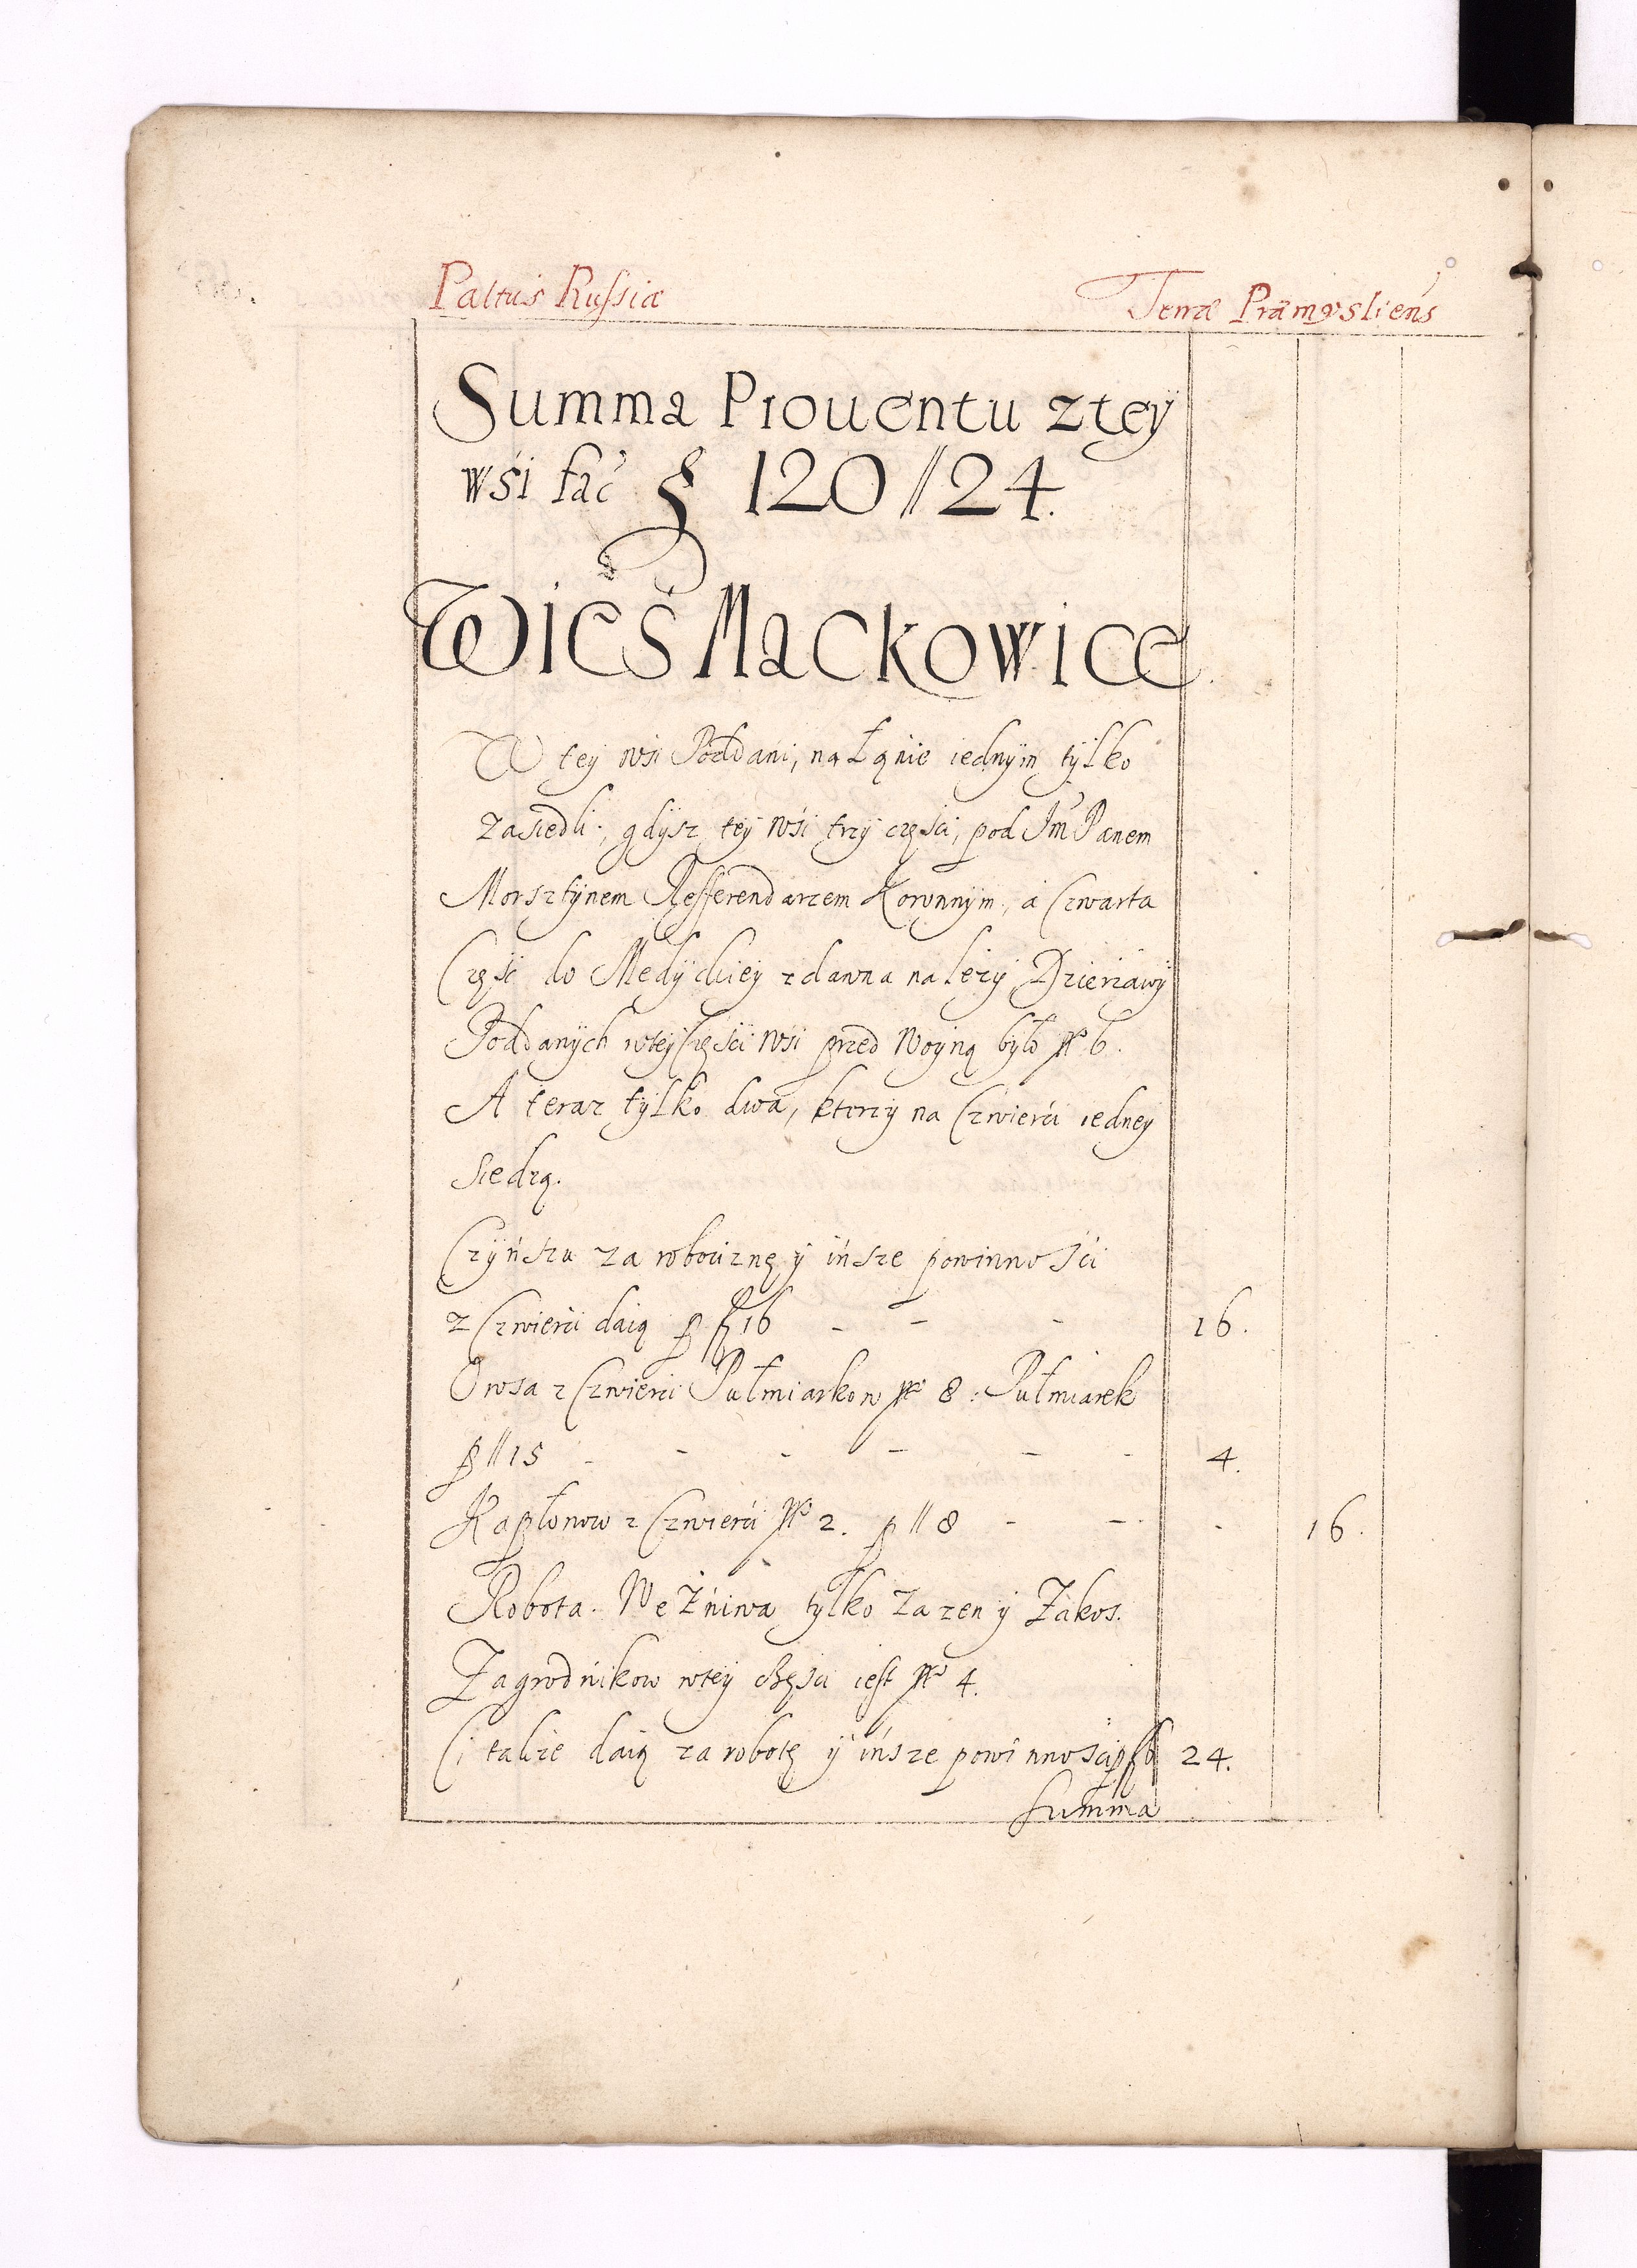 Paltus Russiæ
Terræ Præmysliens
Summa Prouentu z tey
wśi fać 120 // 24.
Wieś Mackowice
W tey wśi Poddani, na Łąnie iednÿm tÿlko
zasiedli; gdÿsz teÿ wśi trzÿ częśći, pod Jm Panem
Morsztÿnem Refferendarzem Koronnÿm, a Czwarta
Częśc do Medÿckieÿ zdawna należÿ Dzierżawÿ
Poddanÿch wteÿ Częśći wśi przed Woÿną było No 6.
A teraz tÿlko dwa, ktorzÿ na Czwierći iedneÿ
siedzą.
Czÿnszu za robociznę ÿ insze powinnośći
z Czwierći daią p f 16 - - - 16.
Owsa z Czwierći Pułmiarkow No 8: Pułmiarek
p // 15 - - - - - - 4.
Kapłonow z Czwierći No 2. p // 8 - - - 16.
Robota. We Żniwa tÿlko Zazen ÿ Zakos.
Zagrodnikow wteÿ częśći iest No 4.
Ci także daią za robotę ÿ insze powinnośći p f 6 24.
Summa